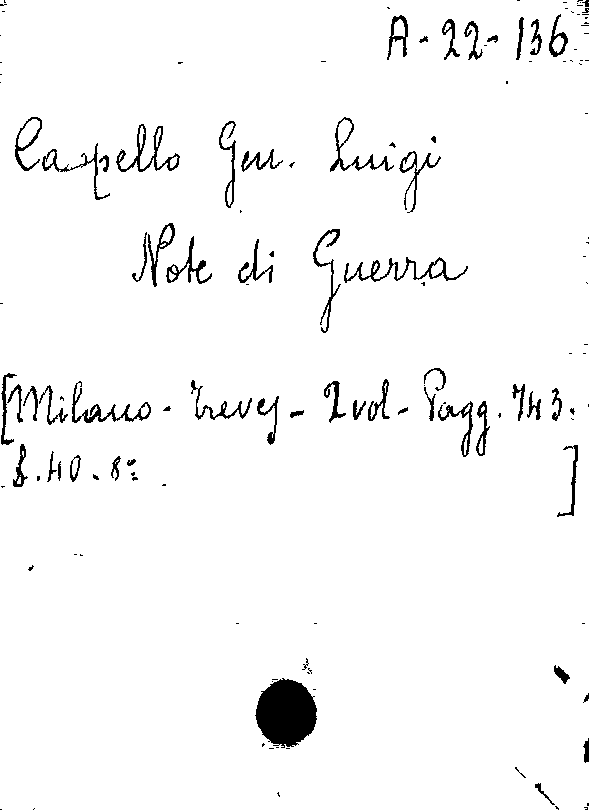 A-22-136
Capello Gen. Luigi
Note di Guerra
[Milano- Treves- 2 vol- Pagg. 743.
£.40. 8º ]